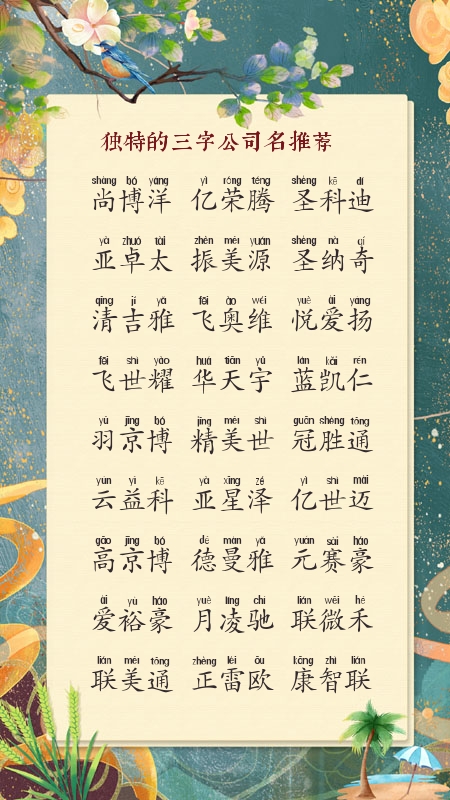 独特的三字公司名推荐
shàng bó yáng yì róng téng shèng kē dí
尚博洋 亿荣腾 圣科迪
yà zhuó tài zhèn měi yuán shèng nà qí
亚卓太 振美源 圣纳奇
qīng jí yǎ fēi ào wéi yuè ài yáng
清吉雅 飞奥维 悦爱扬
fēi shì yào huá tiān yǔ lán kǎi rén
飞世耀 华天宇 蓝凯仁
yǔ jīng bó jīng měi shì guān shèng tōng
羽京博 精美世 冠胜通
yún yì kē yà xīng zé yì shì mài
云益科 亚星泽 亿世迈
gāo jīng bó dé màn yǎ yuán sài háo
高京博 德曼雅 元赛豪
ài yù háo yuè líng chí lián wēi hé
爱裕豪 月凌驰 联微禾
lián měi tōng zhèng léi ōu kāng zhì lián
联美通 正雷欧 康智联